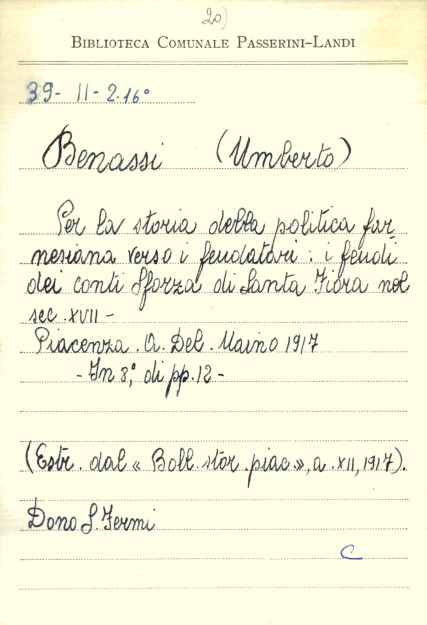 20)
BIBLIOTECA COMUNALE PASSERINI-LANDI
39- 11- 2.16°
Benassi (Umberto)
Per la storia della politica far-
nesiana verso i feudatari: i feudi
dei conti Sforza di Santa Fiora nel
sec. XVII -
Piacenza. A. Del. Maino 1917
- In 8°, di pp. 12 -
(Estr. dal « Boll. stor. piac.», a. XII, 1917).
Dono S. Fermi
C